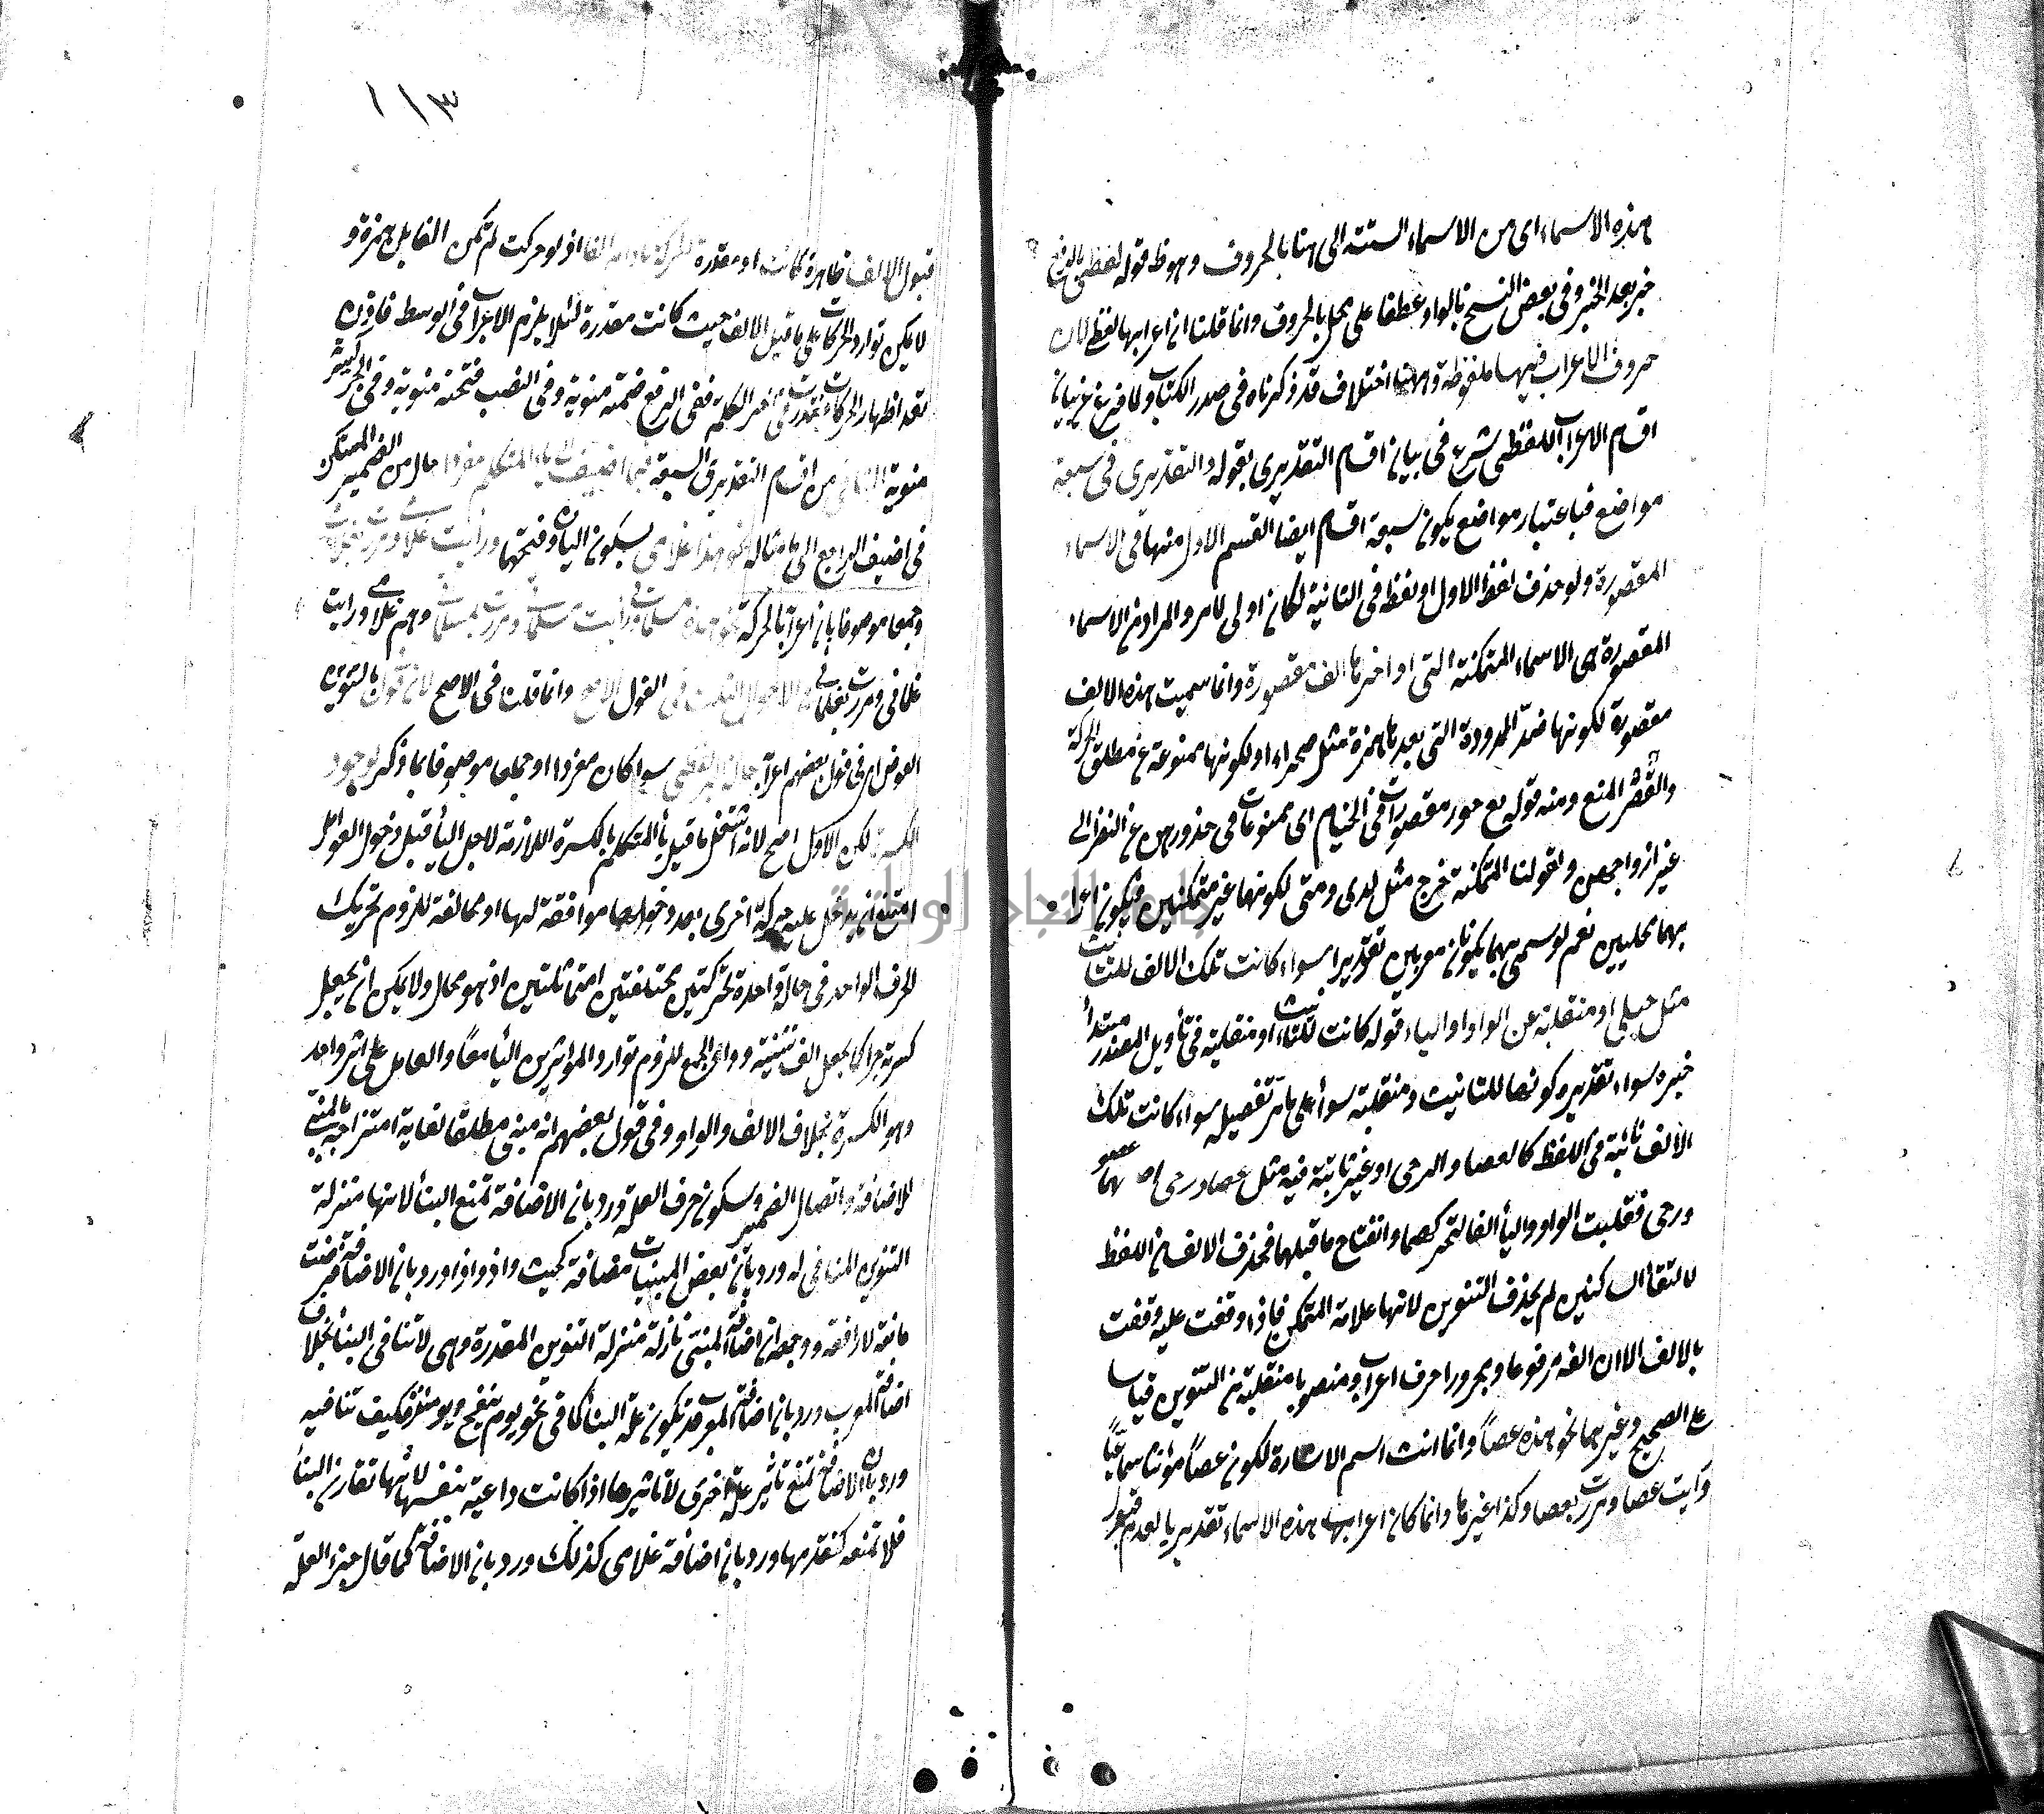 هذه الاسماء اى من الاسماء الستة الى هنا بالحروف وهو ظ قوله لفظى بالرفع
خبر بعد الخبر وفى بعض النسخ بالواو عطفا على محل بالحروف وانما قلنا ان اعرابها لفظى لان
حروف الاعراب فيها ملفوظة وههنا اختلاف قد ذكرناه فى صدر الكتاب ولما فرغ عن بيان
اقسام الاعراب اللفظى شرع فى بيان اقسام التقديرى بقوله والتقديرى فى سبعة
مواضع فباعتبار مواضع يكون سبعة اقسام ايضا القسم الاول منها فى الاسماء
المقصورة ولو حذف لفظ الاول او لفظة فى الثانية لكان اولى لما مر والمراد من الاسماء
المقصورة هى الاسماء المتمكنة التى اواخرها الف مقصورة وانما سميت هذه الالف
مقصورة لكونها ضد الممدودة التى بعدها همزة مثل صحراء او لكونها ممنوعة عن مطلق الحركة
والقصر المنع ومنه قوله تع حور مقصورات فى الخيام اى ممنوعات فى خدورهن عن النظر الى
غير ازواجهن وبقولنا المتمكنة خرج مثل لدى ومتى لكونها غير متمكنين فيكون اعرا
بهما محليين نعم لو سمى بهما يكونان معربين تقديرا سواء كانت تلك الالف للتانيث
مثل حبلى او منقلبة عن الواو او الياء قوله كانت للتانيث او منقلبة فى تأويل المصدر مبتدأ
خبره سواء تقديره كونها للتانيث ومنقلبة سواء على ما مر تفصيله سواء كانت تلك
الالف ثابتة فى اللفظ كالعصا والرحى او غير ثابتة فيه مثل عصا ورحى اصلهما عصو
ورحى فقلبت الواو والياء الفا لتحركهما وانفتاح ما قبلهما فحذف الالف من اللفظ
لالتقاء الساكنين لم يحذف التنوين لانها علامة المتمكن فاذا وقفت عليه وقفت
بالالف الا ان الفه مرفوعا ومجرورا حرف اعراب ومنصوبا منقلبة من التنوين قياسا
على الصحيح وغيرهما نحو هذه عصا وانما انث اسم الاشارة لكون عصا مؤنثا سماعيا
ورأيت عصا ومررت بعصا وكذا غيرها وانما كان اعراب هذه الاسماء تقديريا لعدم قبول
١١٣
قبول الالف ظاهرة كانت او مقدرة الحركة ما دام الفا اذ لو حركت لم تكن الفا بل همزة و
لا يمكن توارد الحركات على ما قبل الالف حيث كانت مقدرة لئلا يلزم الاعراب فى الوسط فاذن
تعذر اظهار الحركات فقدرت فى اخر الكلمة ففى الرفع ضمة منوية وفى النصب فتحة منوية وفى الجر كسرة
منوية الثانى من اقسام التقديرى السبعة فيما اضيف الى ياء المتكلم مفردا حال من الضمير المستكن
فى اضيف الراجع الى ما مثاله نحو هذا غلامى بسكون الياء وفتحها ورأيت غلامى ومررت بغلامى
وجمعا موصوفا بان اعرابه بالحركة نحو هذه مسلماتى ورأيت مسلماتى ومررت بمسلماتى وهم غلمانى ورأيت
غلمانى ومررت بغلمانى الاحوال الثلث فى القول الاصح وانما قلنا فى الاصح لان
العوض اى فى قول بعضهم اعرابه حالة الجر لفظى سواء كان مفردا او جمعا موصوفا بما ذكر لوجود
الكسرة لكن الاول اصح لانه اشتغل ما قبل ياء المتكلم بالكسرة اللازمة لاجل الياء قبل دخول العوامل
امتنع ان يدخل عليه حركة اخرى بعد دخولها موافقة لها او مخالفة للزوم تحريك
الحرف الواحد فى حالة واحدة بحركتين مختلفتين او متماثلتين اذ هو محال ولا يمكن ان يجعل
كسرته جرا كما يجعل الف تثنية وواو الجمع للزوم توارد المؤثرين الياء معا والعامل على اثر واحد
وهو الكسرة بخلاف الالف والواو وفى قول بعضهم انه مبنى مطلقا لغاية امتزاجه بالمبنى
للاضافة واتصال الضمير وسكون حرف العلة ورد بان الاضافة تمنع البناء لانها منزلة
التنوين المنافى له ورد بان بعض المبنيات مضافة كحيث واذ واذا ورد بان الاضافة
مانعة لا رافعة ووجه ان اضافة المبنى نازلة منزلة التنوين المقدرة وهى لا تنافى البناء بخلاف
اضافة المعرب ورد بان اضافة المعرب قد يكون علة البناء كما فى نحو يوم ينفع ويومئذ فكيف تنافيه
ورد بان الاضافة تمنع تاثير علة اخرى لا تاثيرها اذا كانت داعية بنفسها لانها تقارن البناء
فلا تمنعه كتقدمها ورد بان اضافة غلامى كذلك ورد بان الاضافة كما قال جزء العلة